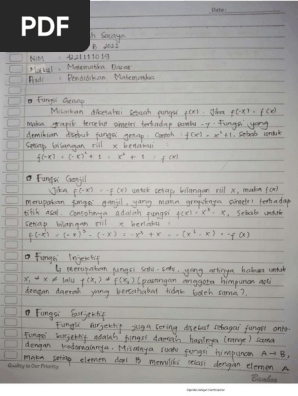 PDF
Date:
B 2022
NIM : 4221111019
Matkul : Matematika Dasar
Prodi : Pendidikan Matematika
Fungsi Genap
Misalkan diketahui sebuah fungsi f(x). Jika f(-x) = f(x)
maka grafik tersebut simetri terhadap sumbu - y. Fungsi yang
demikian disebut fungsi genap. Contoh : f(x) = x²+1. Sebab untuk
setiap bilangan riil x berlaku :
f(-x) = (-x)² + 1 = x² + 1 = f(x)
Fungsi Ganjil
Jika f(-x) = -f(x) untuk setiap bilangan riil x, maka f(x)
merupakan fungsi ganjil, yang mana grafiknya simetri terhadap
titik asal. Contohnya adalah fungsi f(x) = x³ - x, Sebab untuk
setiap bilangan riil x berlaku :
f(-x) = (-x)³ - (-x) = -x³ + x = -(x³ - x) = -f(x)
Fungsi Injektif
merupakan fungsi satu-satu, yang artinya bahwa untuk
lalu f(x₁) ≠ f(x₂) (pasangan anggota himpunan asli
dengan daerah yang bersahabat tidak boleh sama).
Fungsi Surjektif
Fungsi surjektif juga sering disebut sebagai fungsi onto.
Fungsi surjektif adalah fungsi daerah hasilnya (range) sama
dengan kodomainnya. Misalnya suatu fungsi himpunan A → B,
maka setiap elemen dari B memiliki relasi dengan elemen A
Quality is Our Priority